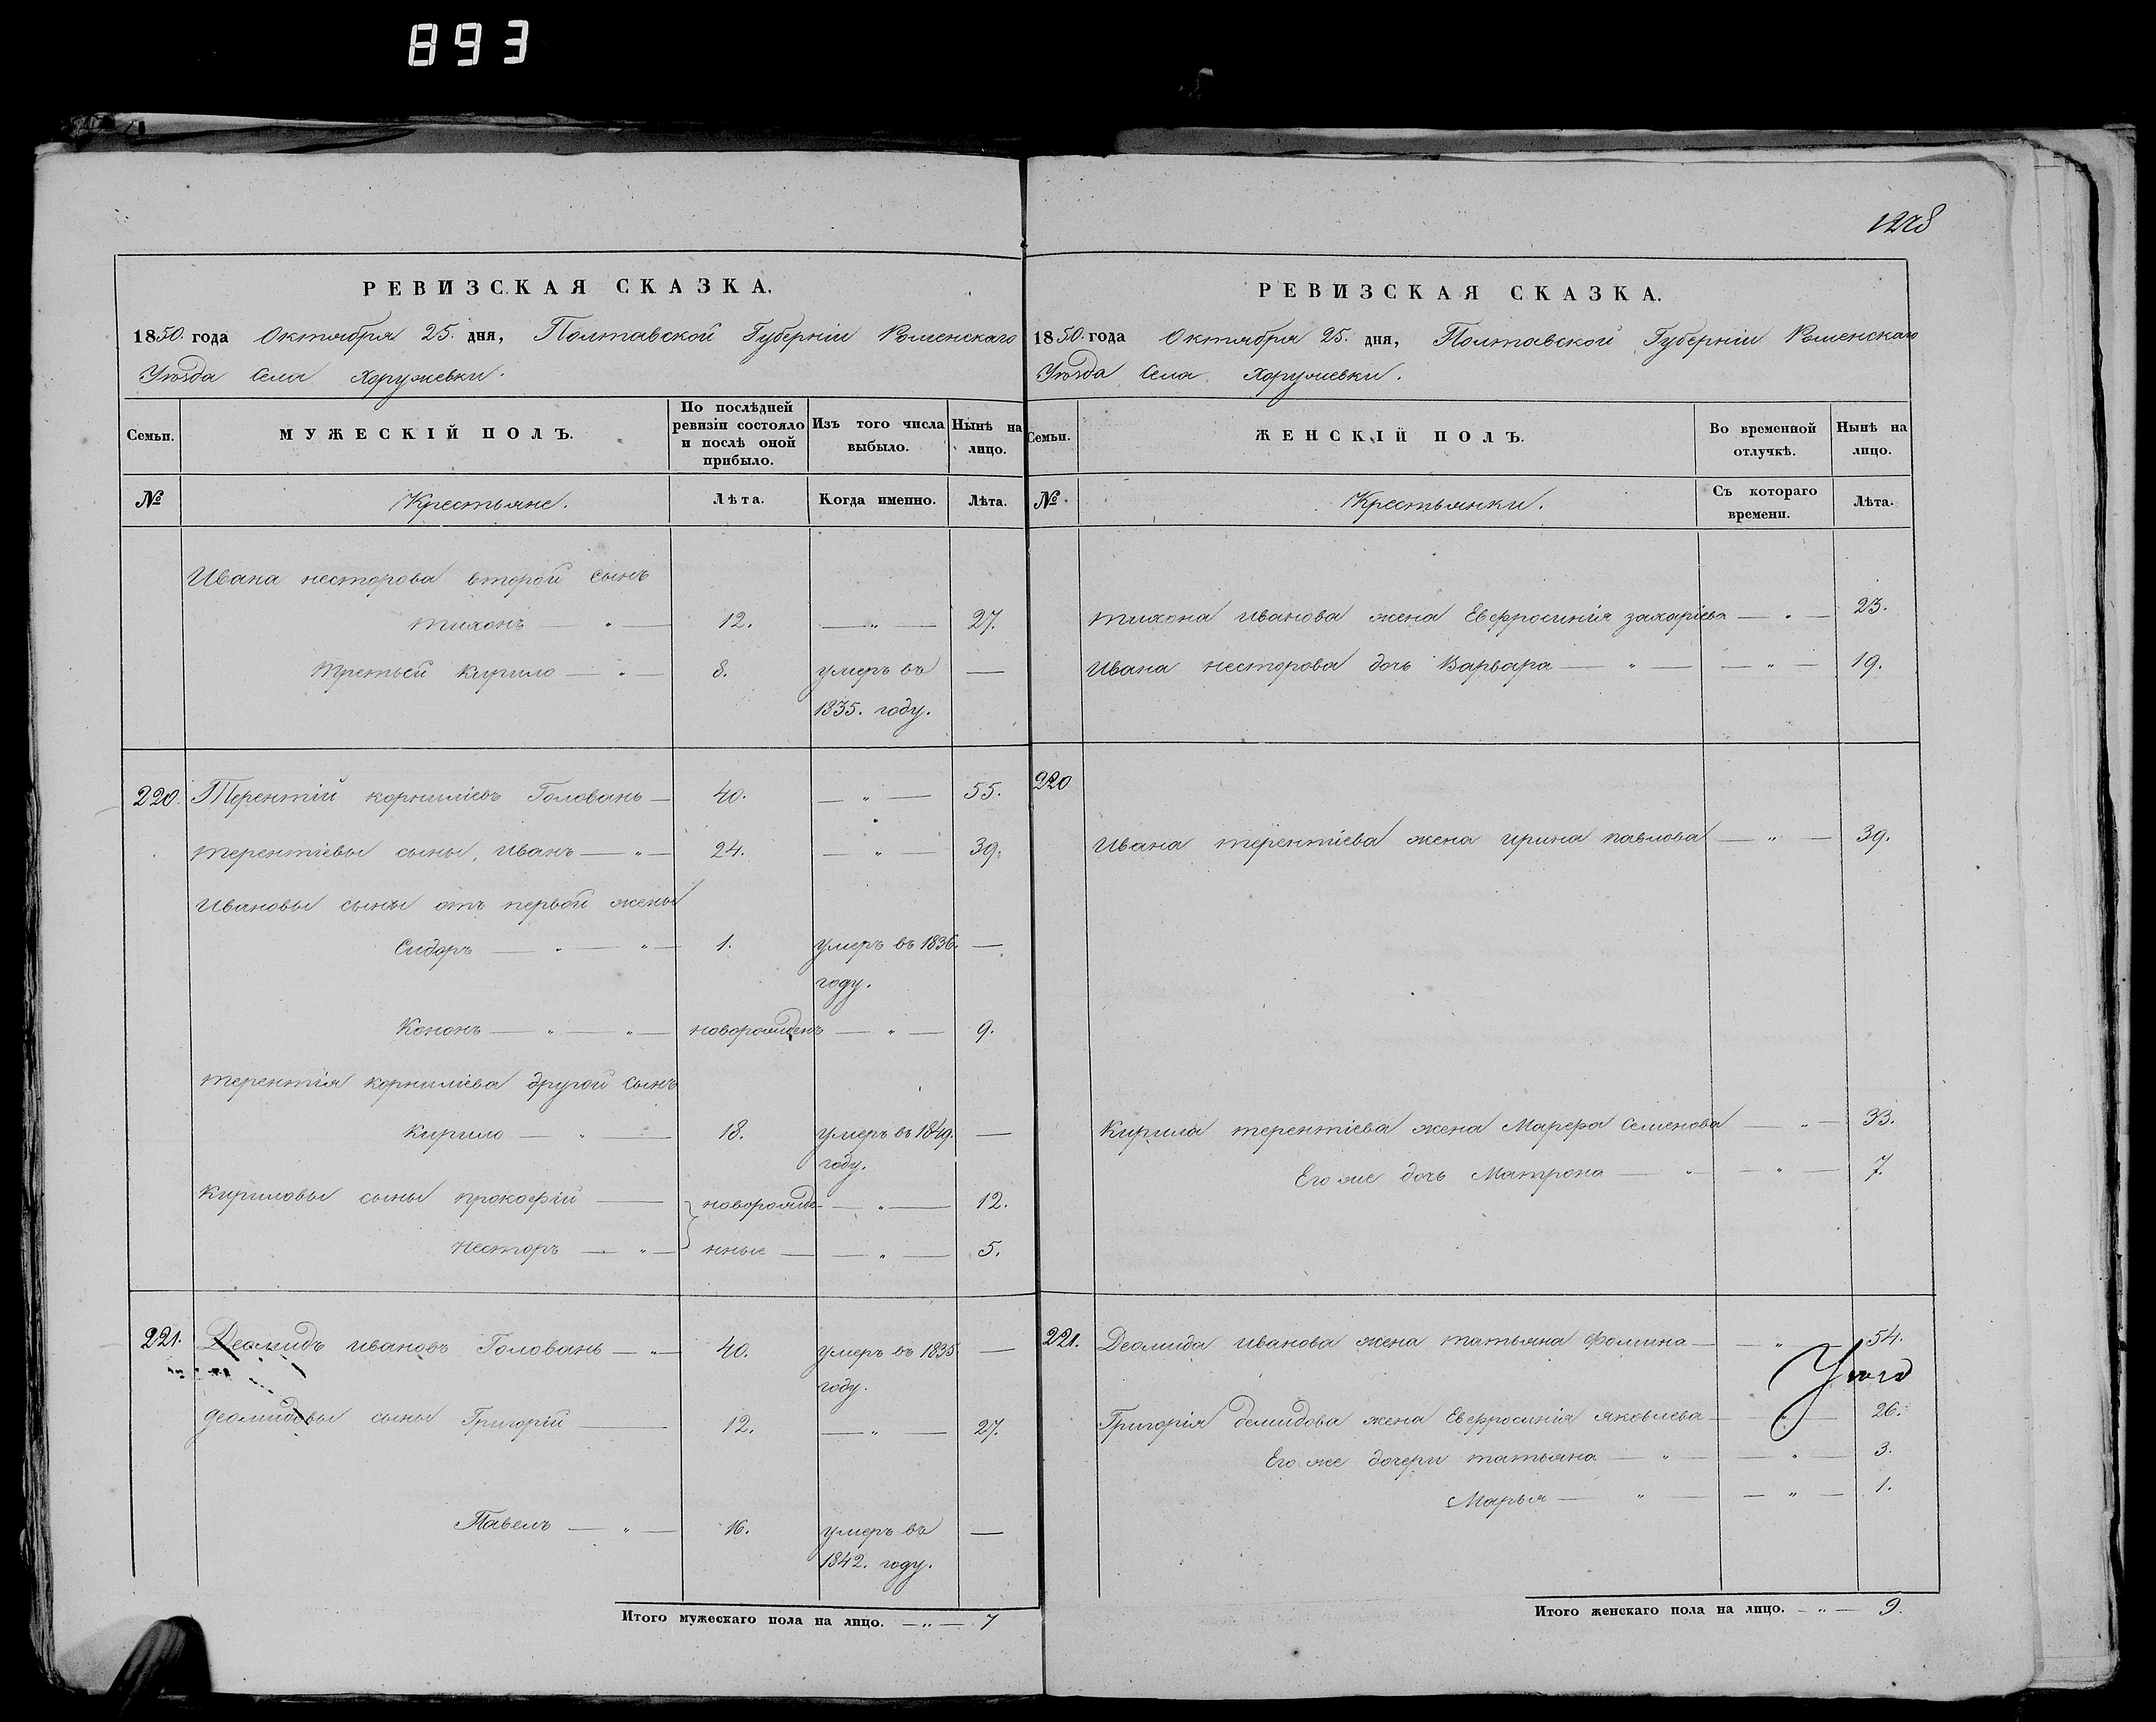 893
1228
РЕВИЗСКАЯ СКАЗКА.
1850. года Октября 25. дня, Полтавской Губерніи Роменскаго
Уѣзда Села Хоружевки.
Семьи. МУЖЕСКІЙ ПОЛЪ. По послѣдней ревизіи состояло и послѣ оной прибыло. Изъ того числа выбыло. Нынѣ на лицо.
№ Крестьяне. Лѣта. Когда именно. Лѣта.
Ивана несторова второй сынъ
тихонъ — " — 12. — " — 27.
третьей кирило — " — 8. умеръ въ —
1835. году.
220. Терентій корниліевъ Головань — 40. — " — 55.
терентіевы сыны, иванъ — " — 24. — " — 39.
ивановы сыны отъ первой жены
Сидоръ — " — " — 1. умеръ въ 1836. —
году.
Кононъ — " — " — новорожденъ — " — 9.
терентія корниліева другой сынъ
кирило — " — 18. умеръ въ 1849. —
году.
Кириловы сыны прокофій — новорожде- — " — 12.
несторъ — " — нные — — " — 5.
221. Деомидъ ивановъ Головань — " — 40. умеръ въ 1835 —
году.
деомидовы сыны Григорій — 12. — " — 27.
Павелъ — " — 16. умеръ въ —
1842. году.
Итого мужескаго пола на лицо. — " — 7
РЕВИЗСКАЯ СКАЗКА.
1850. года Октября 25. дня, Полтавской Губерніи Роменскаго
Уѣзда Села Хоружевки.
Семьи. ЖЕНСКІЙ ПОЛЪ. Во временной отлучкѣ. Нынѣ на лицо.
№ Крестьянки. Съ котораго времени. Лѣта.
тихона иванова жена Евфросинія захаріева — " — 23.
Ивана несторова дочь Варвара — " — — " — 19.
220
Ивана терентіева жена ирина павлова — " — 39.
Кирила терентіева жена Марфа Семенова — " — 33.
Его же дочь Матрона — " — — " — 7.
221. Деомида иванова жена татьяна фомина — — " — 54.
Григорія демидова жена Евфросинія яковлева — " — 26.
Его же дочери татьяна — " — — " — 3.
Марья — " — — " — 1.
Итого женскаго пола на лицо. — " — 9.